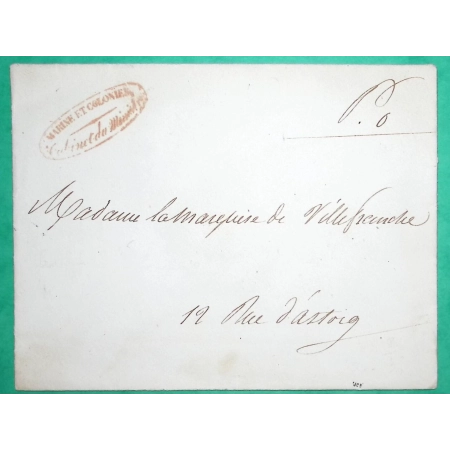 MARINE ET COLONIES
Cabinet du Ministre
P. o
Madame la Marquise de Villefranche
12 Rue d'astorg